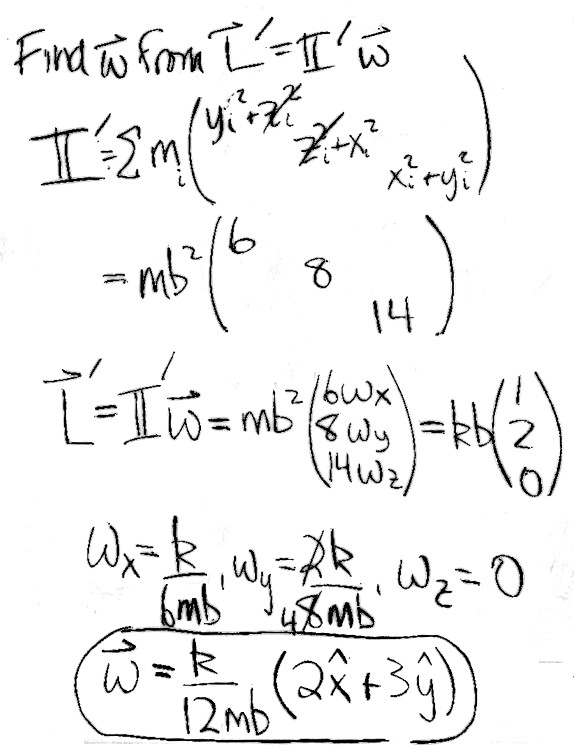 Find ω⃗ from L⃗' = 𝕀' ω⃗
𝕀' = Σ mᵢ ( yᵢ² + z̶ᵢ̶²̶
z̶ᵢ̶²̶ + xᵢ²
xᵢ² + yᵢ² )
= mb² ( 6
8
14 )
L⃗' = 𝕀' ω⃗ = mb² ( 6ωx 8ωy 14ωz ) = kb ( 1 2 0 )
ωx = k/6mb , ωy = 2̶k/4 8̶mb , ωz = 0
ω⃗ = k/12mb (2x̂ + 3ŷ)